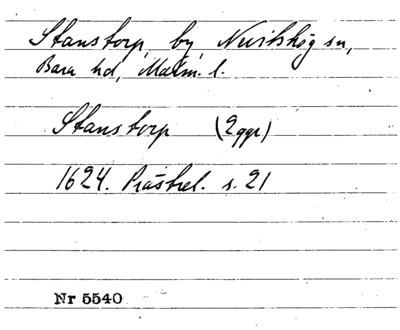 Stanstorp, by, Nevishög sn,
Bara hd, Malm. l.
Stanstorp (2ggr)
1624. Prästrel. s. 21
Nr 5540